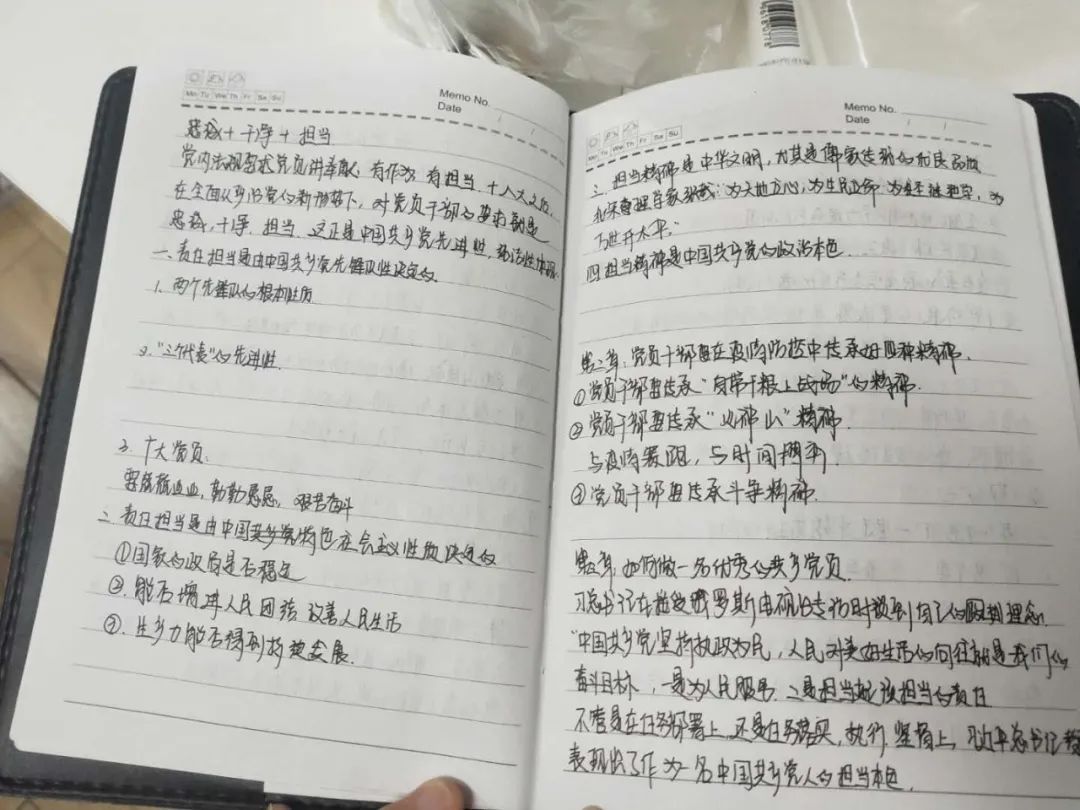 Mo Tu We Th Fr Sa Su
Memo No.
Date / /
忠诚+干净+担当
党内法规要求党员讲奉献、有作为、有担当,十八大之后,
在全面从严治党的新形势下,对党员干部的要求就是
忠诚,干净,担当,这正是中国共产党先进性,纯洁性体现
一、责任担当是由中国共产党先锋队性决定的
1. 两个先锋队的根本性质
2."三个代表"的先进性.
3. 十大党员.
要兢兢业业,勤勤恳恳,艰苦奋斗
二、责任担当是由中国共产党特色社会主义性质决定的
①国家的政局是否稳定
②.能否增进人民团结 改善人民生活
③.生产力能否得到持续发展.
Mo Tu We Th Fr Sa Su
Memo No.
Date / /
三、担当精神是中华文明,尤其是儒家传统的优良品质
北宋理学家张载:为天地立心,为生民立命,为往圣继绝学,为
万世开太平."
四.担当精神是中国共产党的政治本色.
第三章,党员干部要在疫情防控中传承好四种精神.
①党员干部要传承"自带干粮上战场"的精神.
②党员干部要传承"火神山"精神.
与疫情赛跑,与时间搏弈.
③党员干部要传承斗争精神.
第四章,如何做一名优秀的共产党员.
习总书记在接受俄罗斯电视台专访时谈到自己的执政理念:
"中国共产党坚持执政为民,人民对美好生活的向往就是我们的
奋斗目标,一是为人民服务,二是担当起该担当的责任
不管是在任务部署上,还是任务落实,执行,坚持上,习近平总书记都
表现出了作为一名中国共产党人的担当本色.